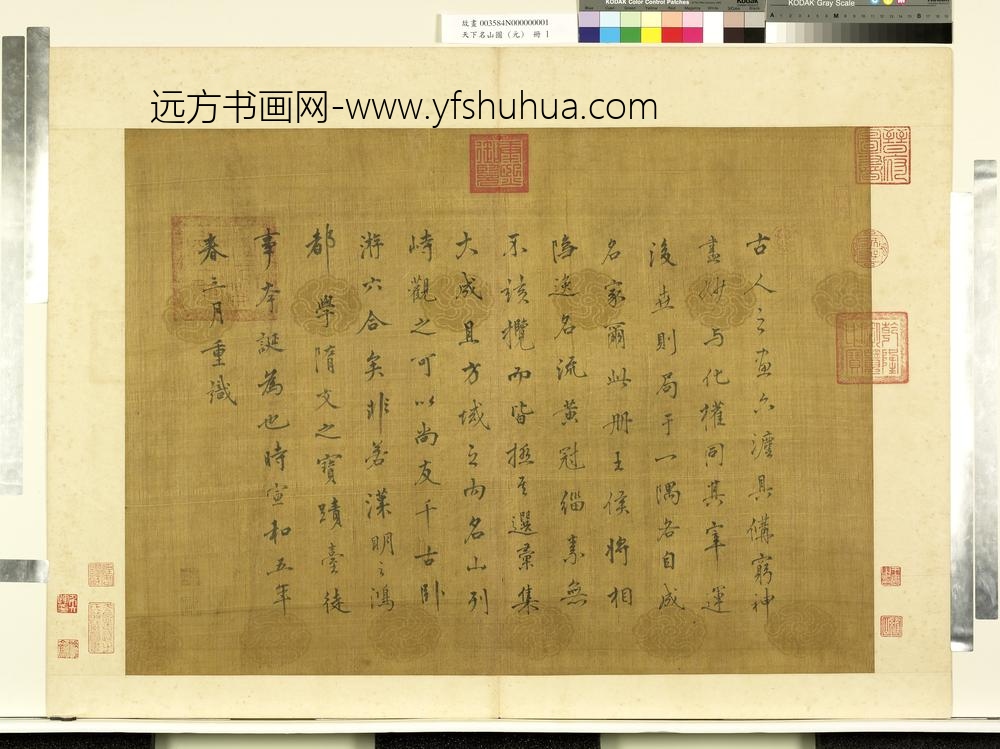 故畫 003584N000000001
天下名山圖（元） 冊 1
KODAK Color Control Patches
KODAK
KODAK Gray Scale
远方书画网-www.yfshuhua.com
古人之畫六灋具備窮神
盡妙与化權同其宰運
後世則局于一隅各自成
名家爾此册王侯將相
隐逸名流黄冠緇素無
不該攬而皆極其選彙集
大成且方域之内名山列
峙觀之可以尚友千古卧
游六合矣非若漢明之鴻
都學隋文之寶蹟臺徒
事夸誕為也時宣和五年
春三月重識
乾隆御覽之寶